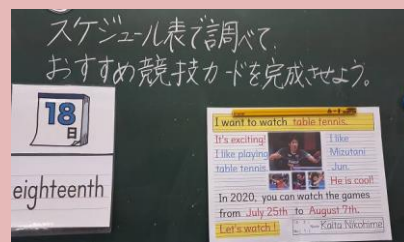 スケジュール表で調べて、
おすすめ競技カードを完成させよう。
18
日
eighteenth
I want to watch table tennis.
It's exciting!
I like playing
table tennis
I like
Mizutani
Jun.
He is cool!
In 2020, you can watch the games
from July 25th to August 7th.
Let's watch!
Kaita Nikohime